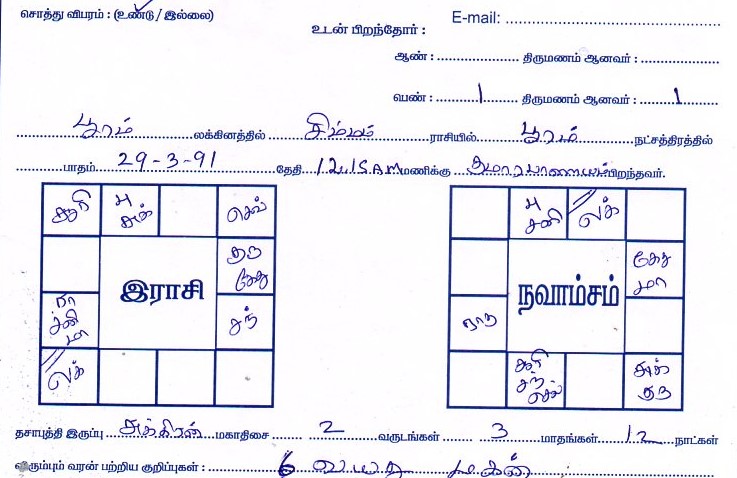 சொத்து விபரம் : (உண்டு / இல்லை)
E-mail:
உடன் பிறந்தோர் :
ஆண் : திருமணம் ஆனவர் :
பெண் : 1 திருமணம் ஆனவர் : 1
பூரம் லக்கினத்தில் சிம்மம் ராசியில் பூரம் நட்சத்திரத்தில்
பாதம் 29-3-91 தேதி 12.15 A.M மணிக்கு குமாரபாளையம் பிறந்தவர்.
சூரி பு சுக் செவ் பு சனி லக்
குரு கேது கேது மா
இராசி நவாம்சம்
ரா சனி மா சந் ராகு
லக் சூரி சந் செவ் சுக் குரு
தசாபுத்தி இருப்பு சுக்கிரன் மகாதிசை 2 வருடங்கள் 3 மாதங்கள் 12 நாட்கள்
விரும்பும் வரன் பற்றிய குறிப்புகள் : 6 வயது மகன்